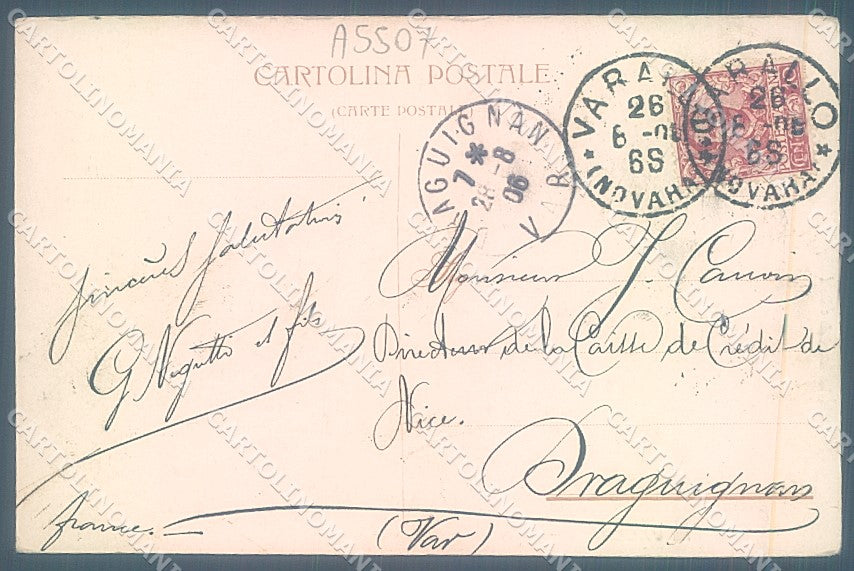 A5507
CARTOLINA POSTALE
(CARTE POSTALE)
VARALLO
26
6 -06
6S
* (NOVARA) *
VARALLO
26
6 -06
6S
(NOVARA) *
DRAGUIGNAN
7 *
28 -8
06
VAR
Sincères salutations
G Nigutto et fils
Monsieur J. Cauvin
Directeur de la Caisse de Crédit de
Nice.
Draguignan
(Var)
france.
CARTOLINOMANIA